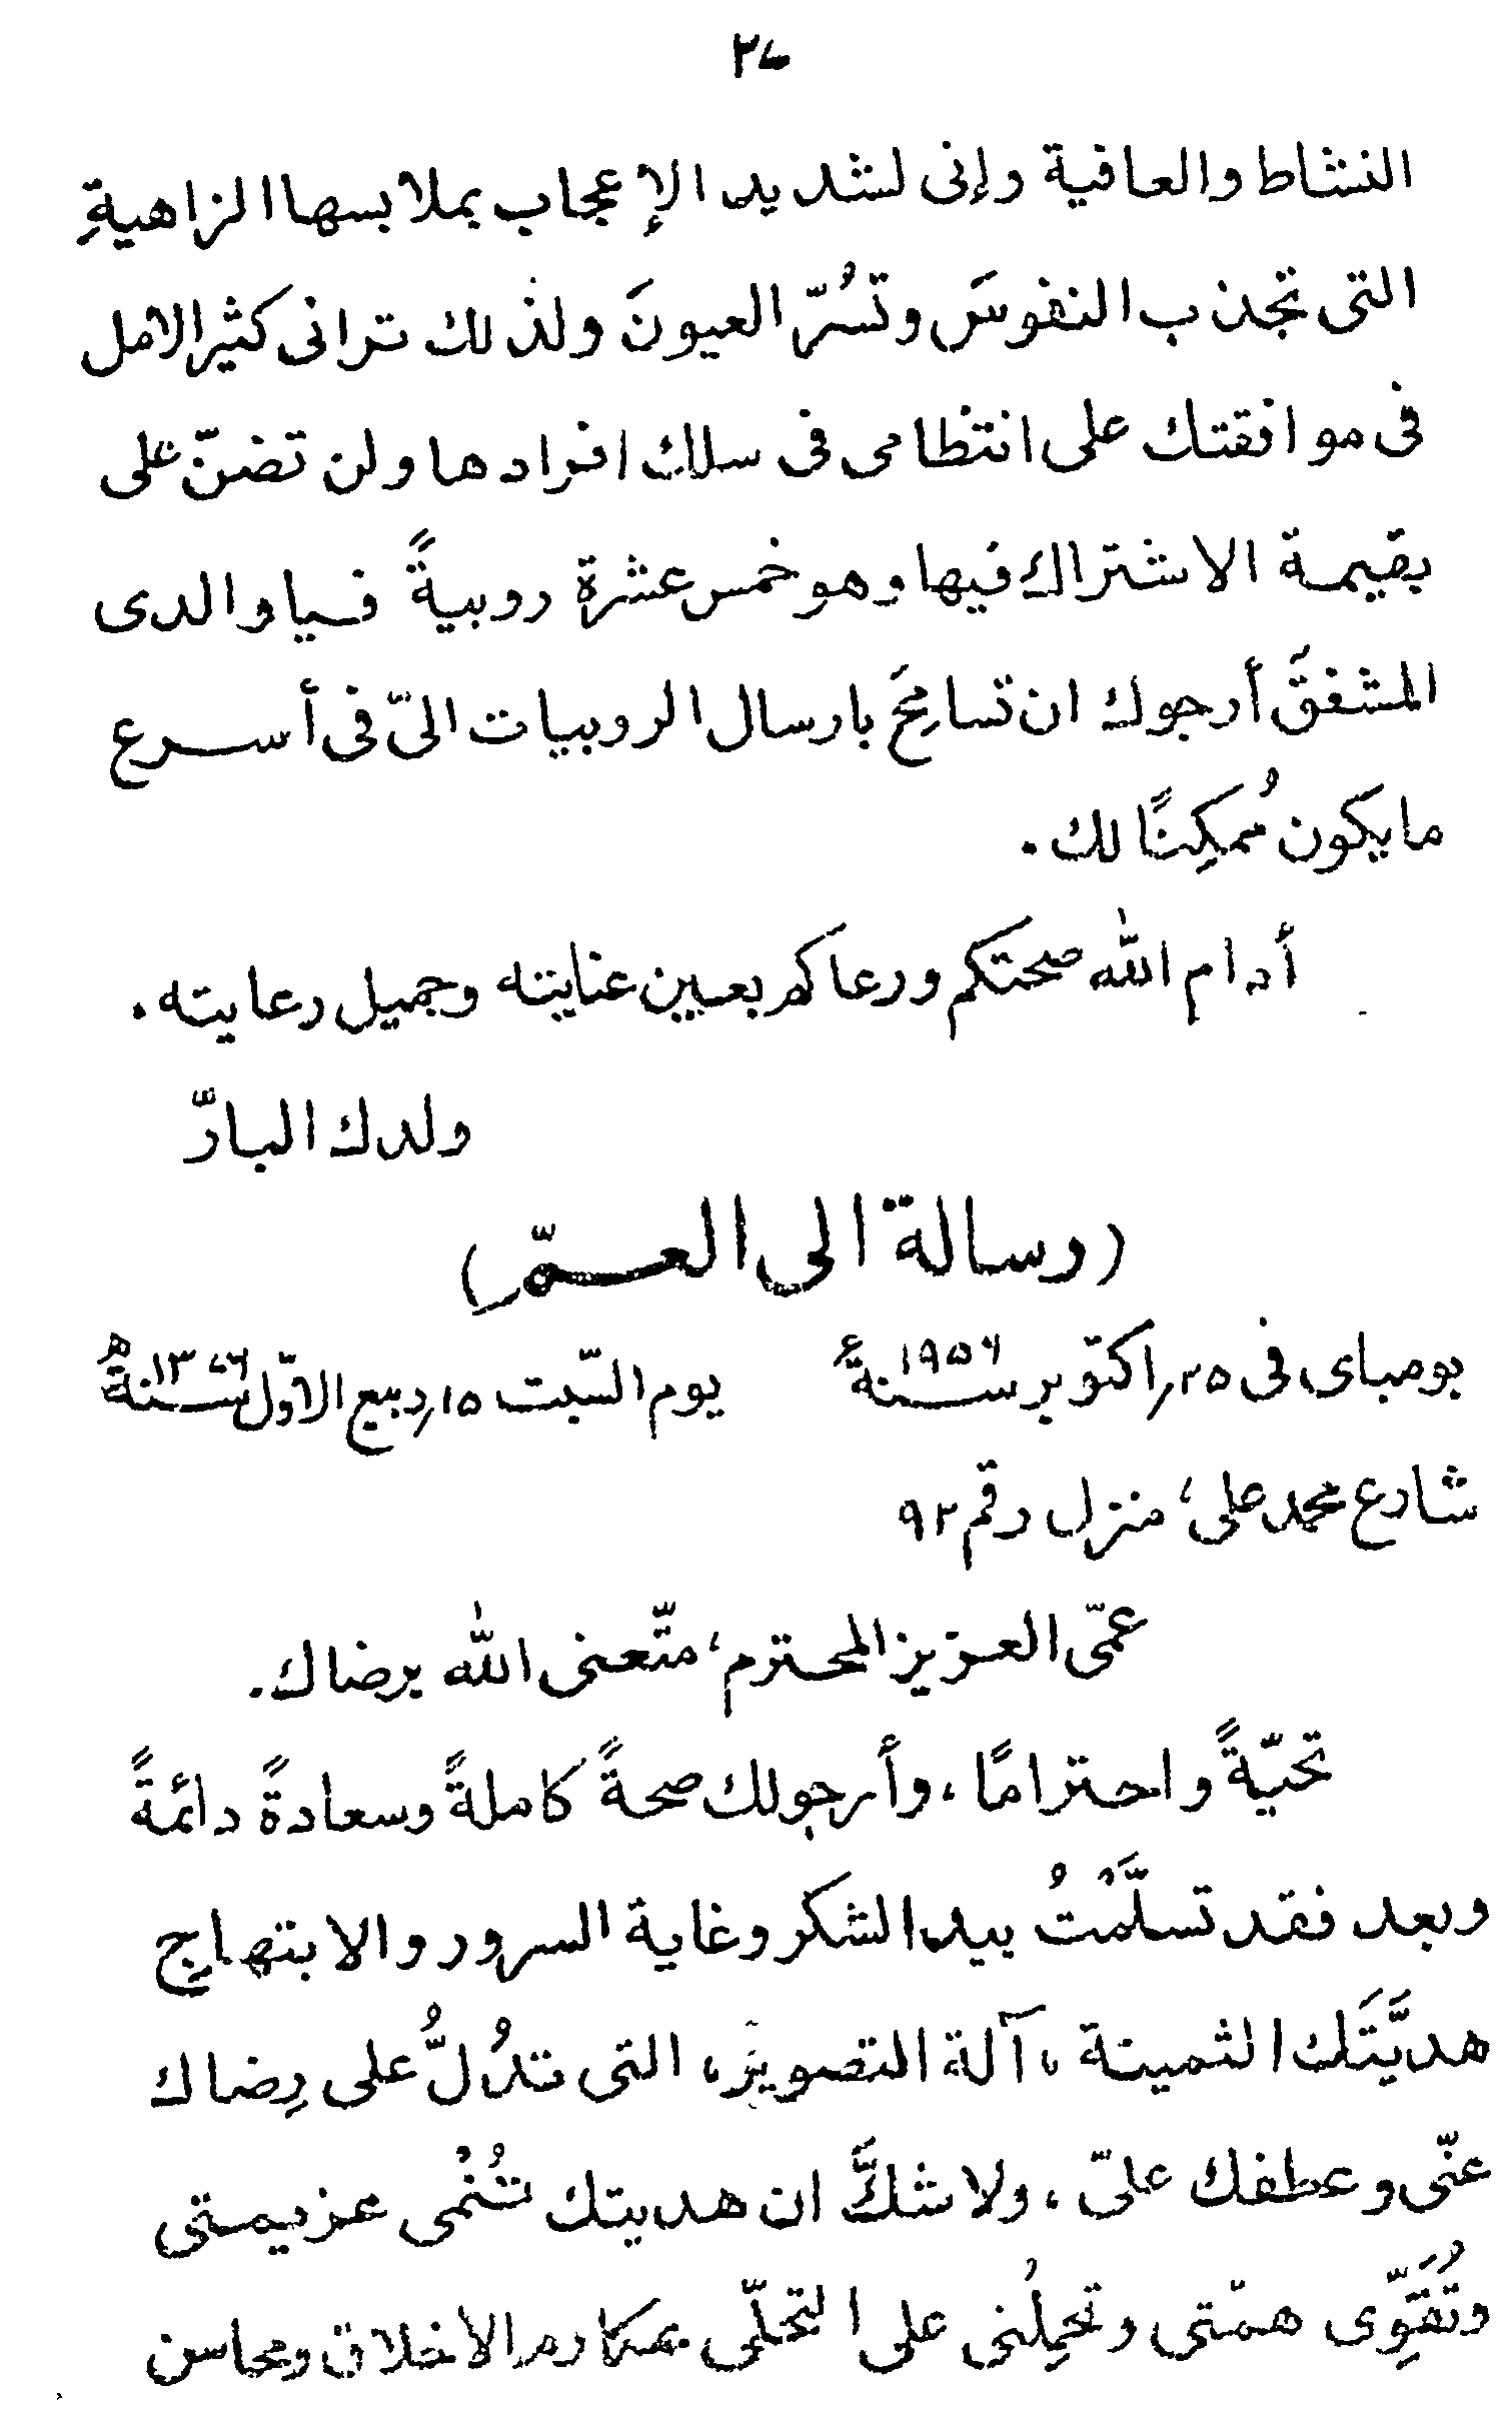 ٢٤
النشاط والعافية وإنى لشديد الإعجاب بملابسها الزاهيةِ
التى تجذب النفوسَ وتسُرّ العيونَ ولذلك ترانى كثير الامل
فى موافقتك على انتظامى فى سلك افرادها ولن تضنّ على
بقيمة الاشتراك فيها وهو خمس عشرة روبيةً فيا والدى
المشفقَ أرجوك ان تسامِحَ بارسال الروبيات الىّ فى أسرع
ما يكون مُمكِنًا لك.
أدام الله صحتكم ورعاكم بعين عنايته وجميل رعايته.
ولدك البارّ
(رسالة الى العمّ)
بومباى فى ٢٥/ اكتوبر سنة ١٩٥٦ء يوم السّبت ١٥/ ربيع الاوّل سنة ١٣٧٦ھ
شارع محمد على، منزل رقم ٩٢
عمّى العزيز المحترم، متّعنى الله برضاك.
تحيّةً واحترامًا، وأرجو لك صحةً كاملةً وسعادةً دائمةً
وبعد فقد تسلَّمْتُ بيد الشكر وغاية السرور والابتهاجِ
هديَّتَك الثمينة، آلة التصوير، التى تدُلُّ على رِضاك
عنّى وعطفك علىّ، ولا شكَّ ان هديتك تُنْمى عزيمتى
وتُقَوِّى همّتى وتحمِلُنى على التحلّى بمكارم الاخلاق ومحاسن